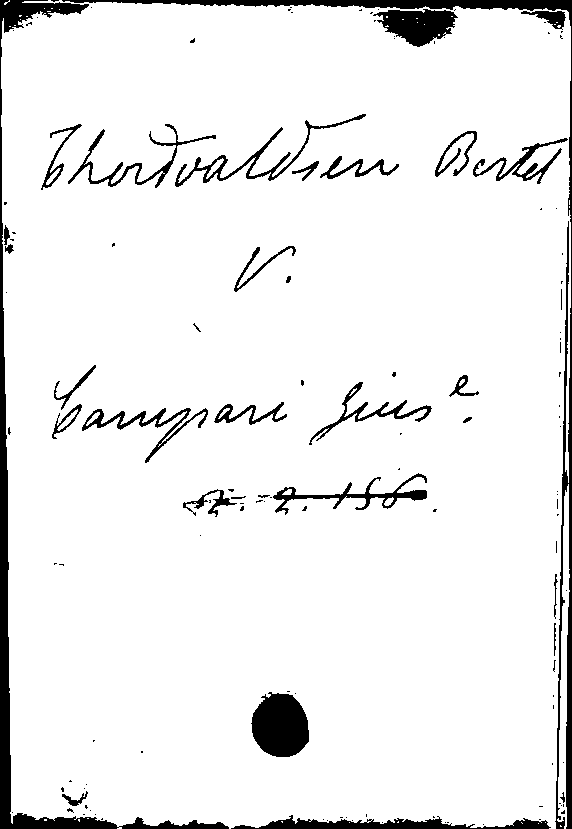 Thordvaldsen Bertel
V.
Campari Gius<sup>e</sup>.
2. 156.